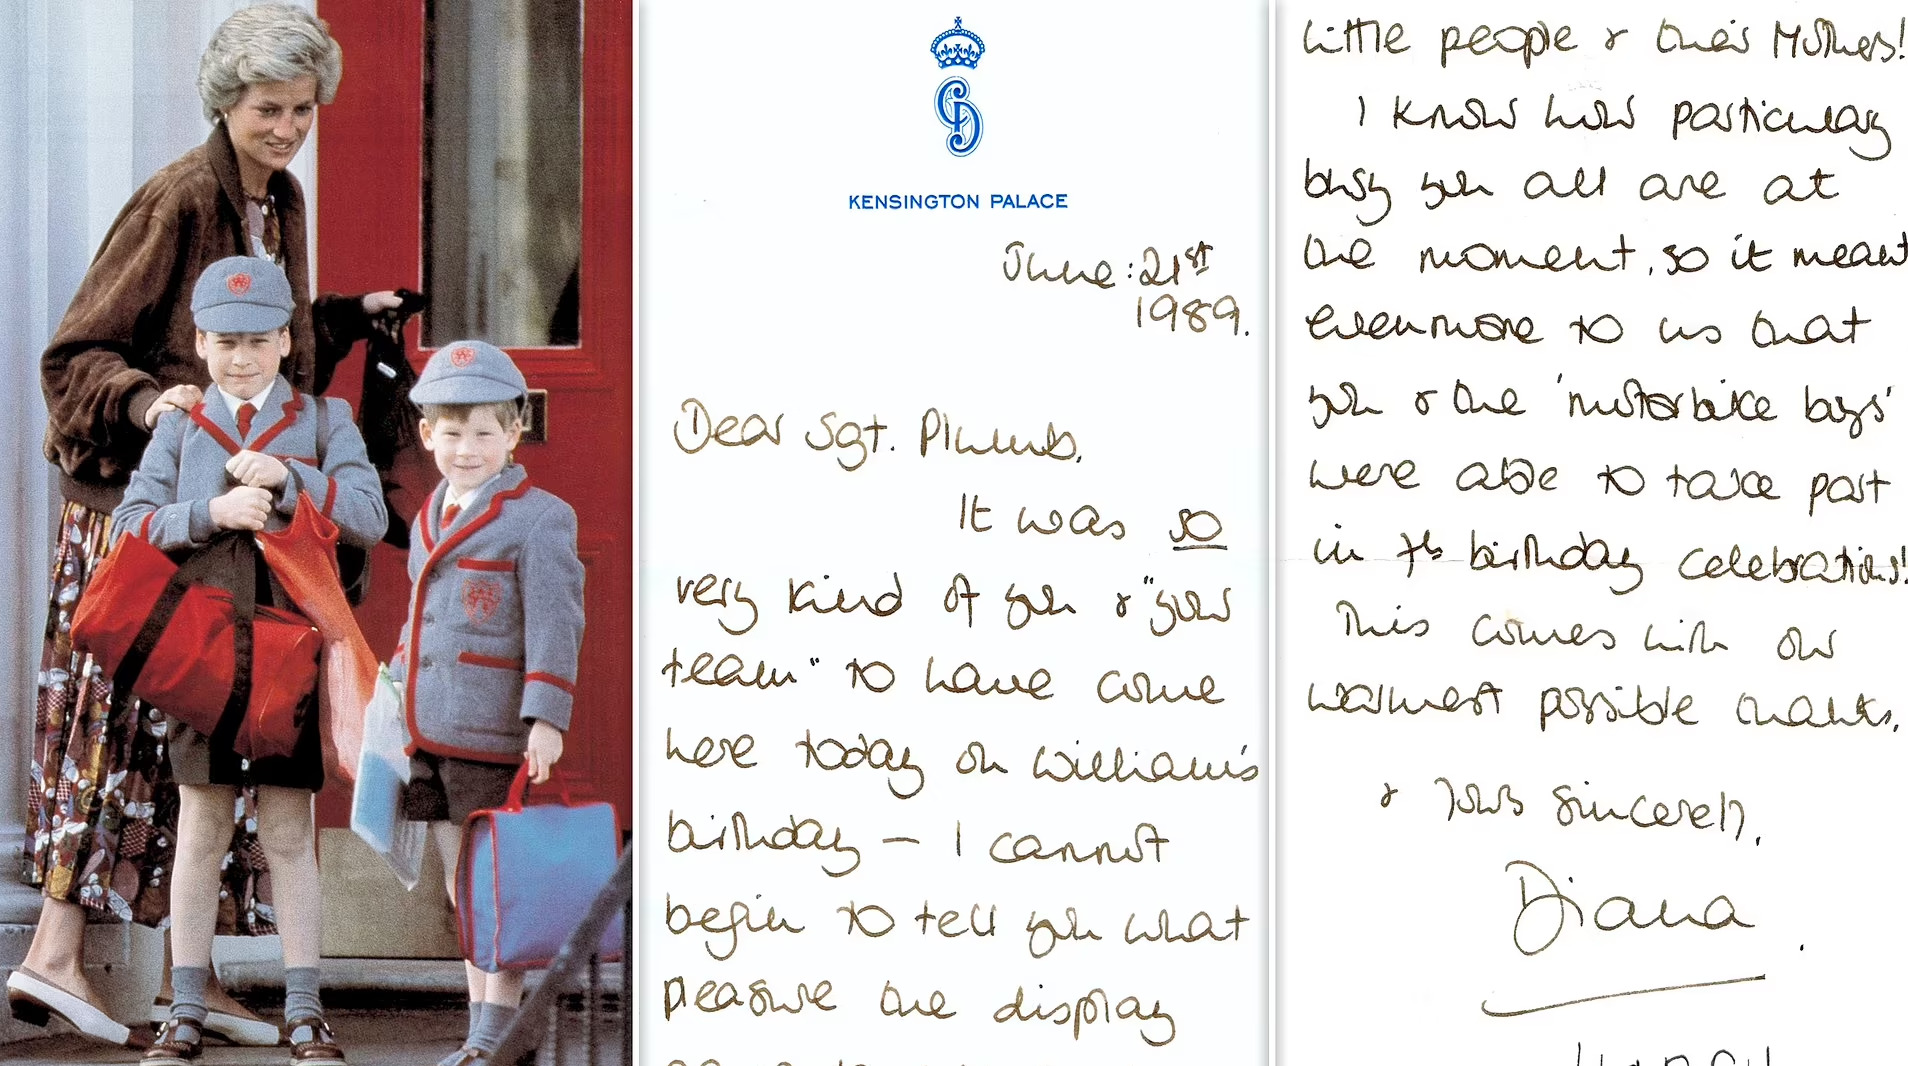 KENSINGTON PALACE
June: 21st
1989.
Dear Sgt. Plumb,
It was so
very kind of you & "your
team" to have come
here today on William's
birthday — I cannot
begin to tell you what
pleasure the display
little people & their Mothers!
I know how particulary
busy you all are at
the moment, so it meant
evenmore to us that
you & the 'motorbike boys'
were able to take part
in 7th birthday celebrations!
This comes with our
warmest possible thanks.
& Yours Sincerely,
Diana.